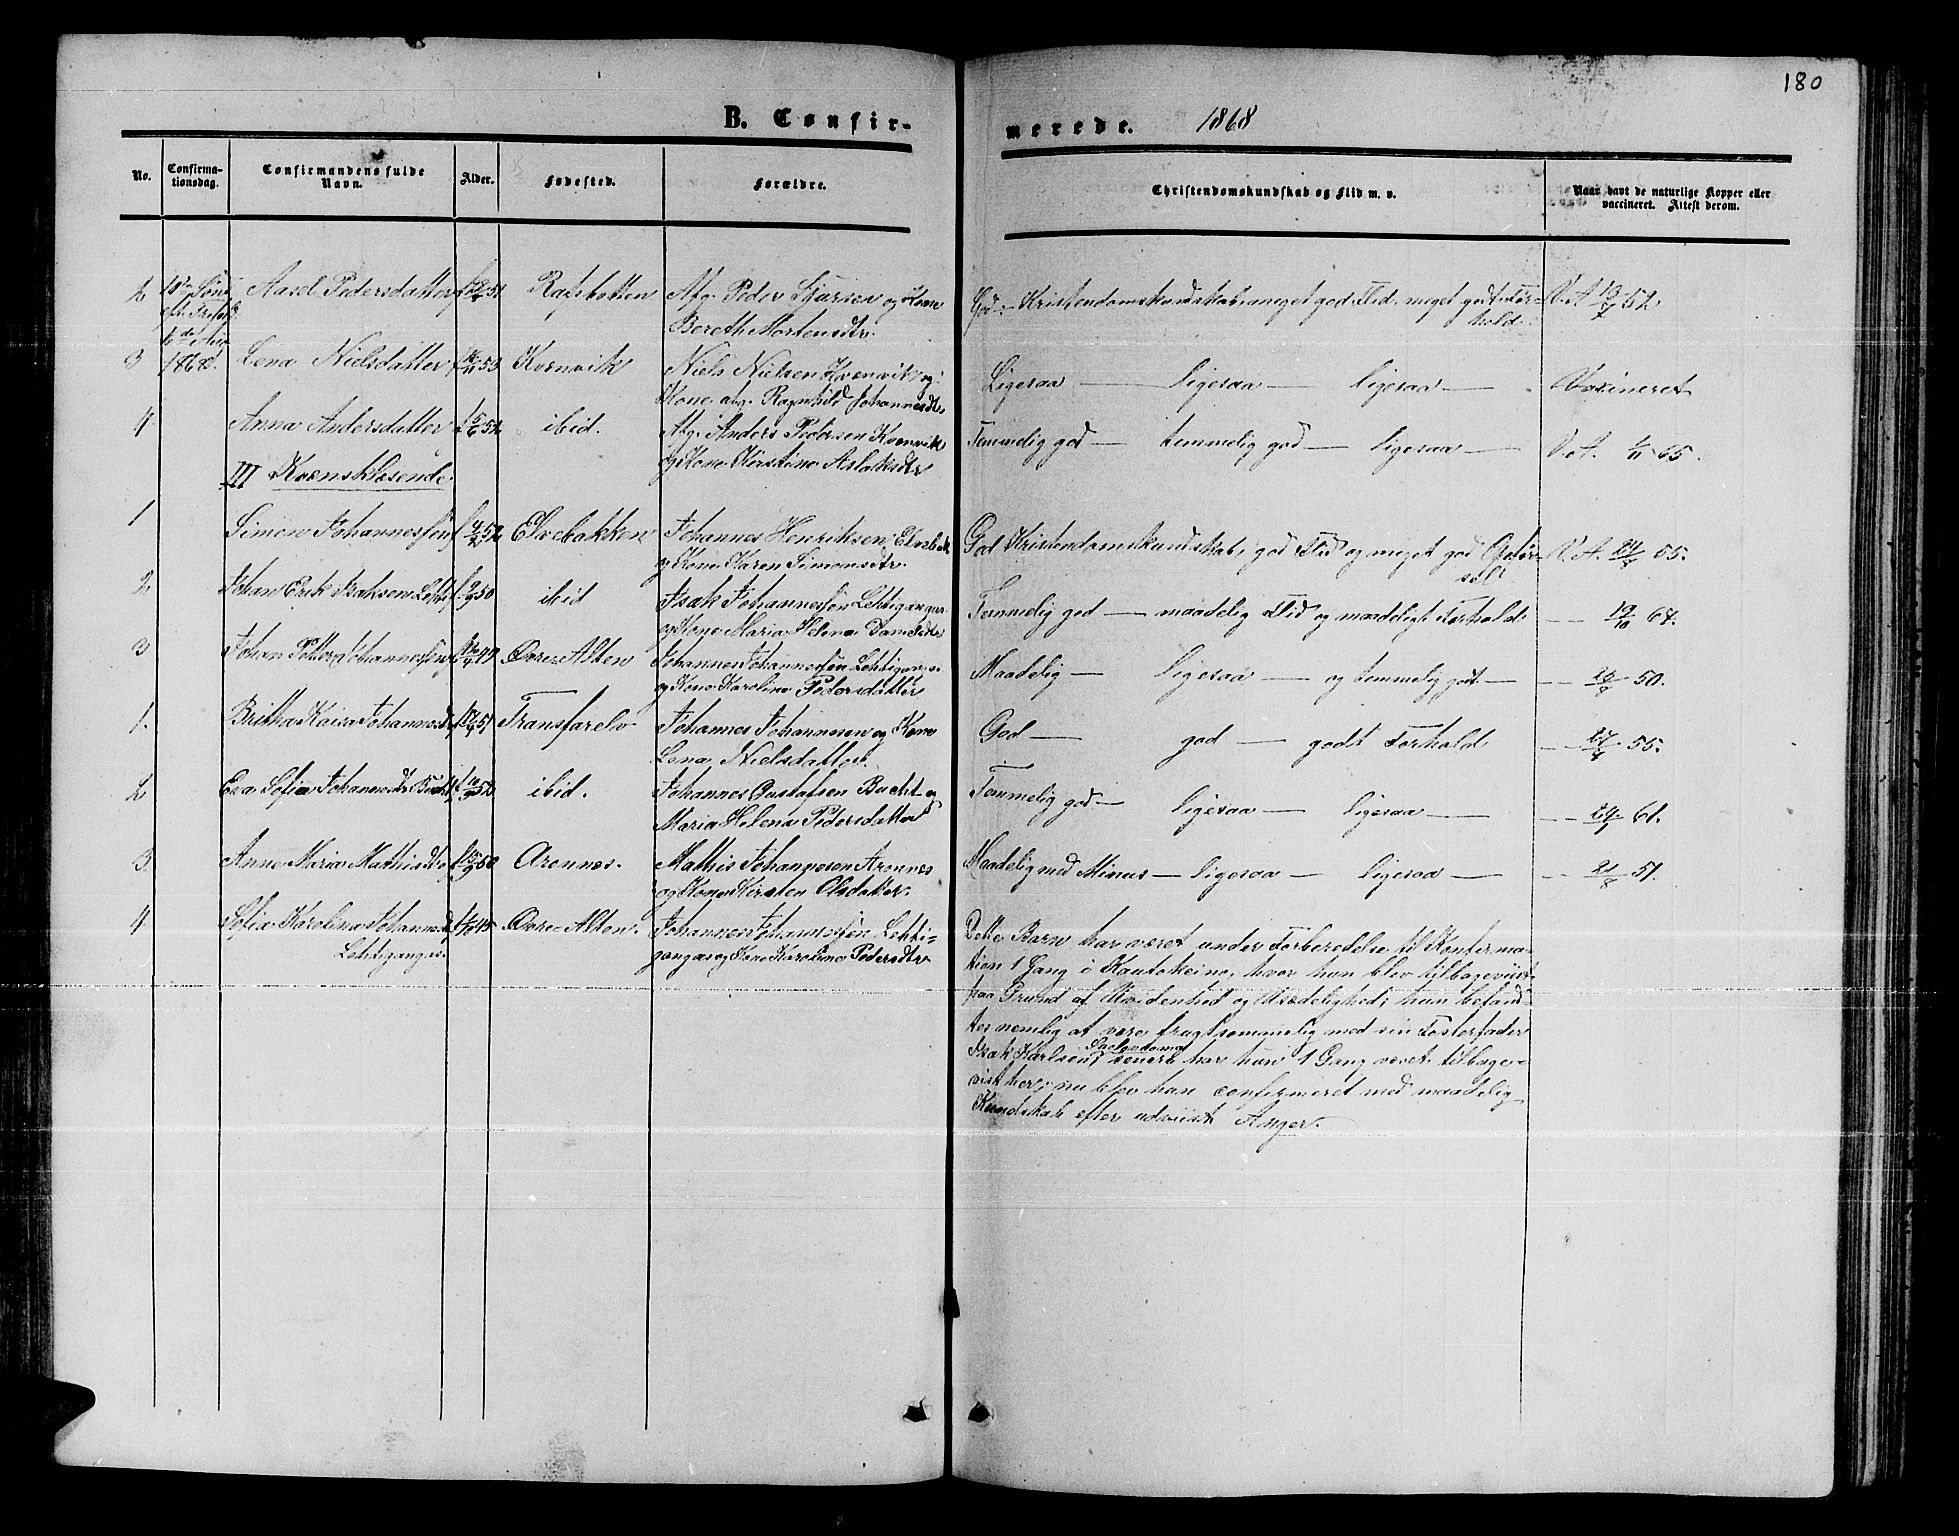 180
B. Confir-
merede. 1868
No.
Confirma-
tionsdag.
Confirmandens fulde
Navn.
Alder.
Fødested.
Forældre.
Christendomskundskab og Flid m. v.
Naar havt de naturlige Kopper eller
vaccineret. Attest derom.
2 Aasel Pedersdatter Rafsbotten Afg. Peder Sjursen og Kone
Bereth Mortensdtr.
God Kristendomskundskab, meget god Flid, meget godt For-
hold.
V. A 52
1868.
3 Lena Nielsdatter 53 Kvænvik Niels Nielsen Kvænvik og
Kone afg. Ragnhild Johannesdtr
Ligesaa — ligesaa — ligesaa — Vaxineret
4 Anna Andersdatter ibid. Afg. Anders Pedersen Kvænvik
og Kone Kirstine Aslaksdtr
Temmelig god — temmelig god — ligesaa — V. A. 65.
III Kvænsklæsende.
1 Simon Johannessen 52 Elvebakken Johannes Henriksen Elvebak
og Kone Karen Simonsdtr.
God Kristendomskundskab, god Flid og meget god Opfør-
sel V. A. 24/7 55.
2 Johan Erik Isaksen 50 ibid Isak Johannessen Lehtigangas
og Kone Maria Helena
Temmelig god — maadelig Flid og maadeligt Forhold. — 19/10 67.
3 Johan Petter Johannessen 47 Øvre-Alten Johannes Johannessen Lehtigangas
og Kone Karolina Pedersdatter
Maadelig — ligesaa — og temmelig godt — 50.
1. Britha Kaisa Johannesdtr 51 Transfarelv Johannes Johannesen og Kone
Lena Nielsdatter.
God — god — godt Forhold — 55.
2 Eva Sofia Johannesdtr Bucht 52 ibid. Johannes Gustafsen Bucht og
Maria Helena Pedersdatter
Temmelig god — ligesaa — ligesaa — 61.
3 Anne Maria Mathisdtr 50 Aronnes. Mathis Johannesen Aronnes
og Kone Kirsten Olsdatter.
Maadelig med Minus — ligesaa — ligesaa — 21/8 51.
4 Sofia Karolina Johannesdtr
Lehtigangas.
45 Øvre-Alten. Johannes Johannessen Lehti-
gangas og Kone Karolina Pedersdtr
Dette Barn har været under Forberedelse til Konfirma-
tion 1 Gang i Kautokeino, hvor hun blev tilbageviist
paa Grund af Uvidenhed og Usædelighed; hun befand-
tes nemlig at være frugtsommelig med sin Fosterfader
Isak Karlsen; senere har hun 1 Gang været tilbage-
vist her; nu blev hun confirmeret med maadelig
Kundskab efter udviist Anger.